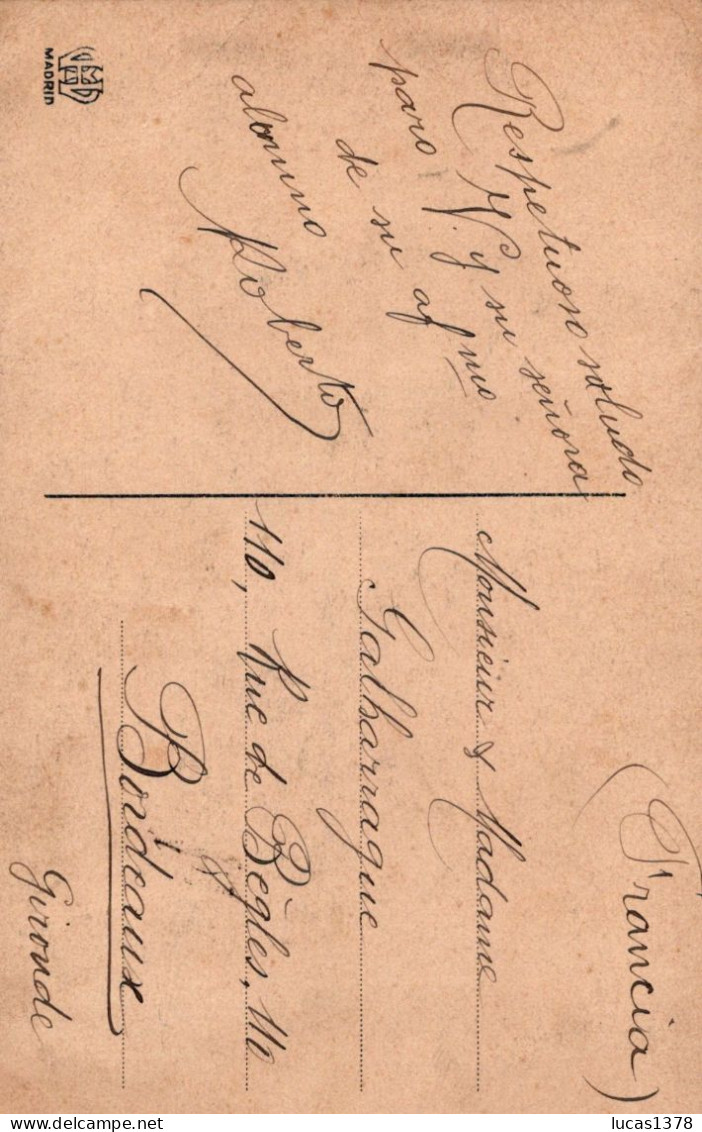 Respetuoso saludo
para V. y su señora
de su afmo
alumno
Roberto
MADRID
(Francia)
Monsieur & Madame
Galharrague
110, Rue de Bègles, 110
Bordeaux
Gironde
lucas1378